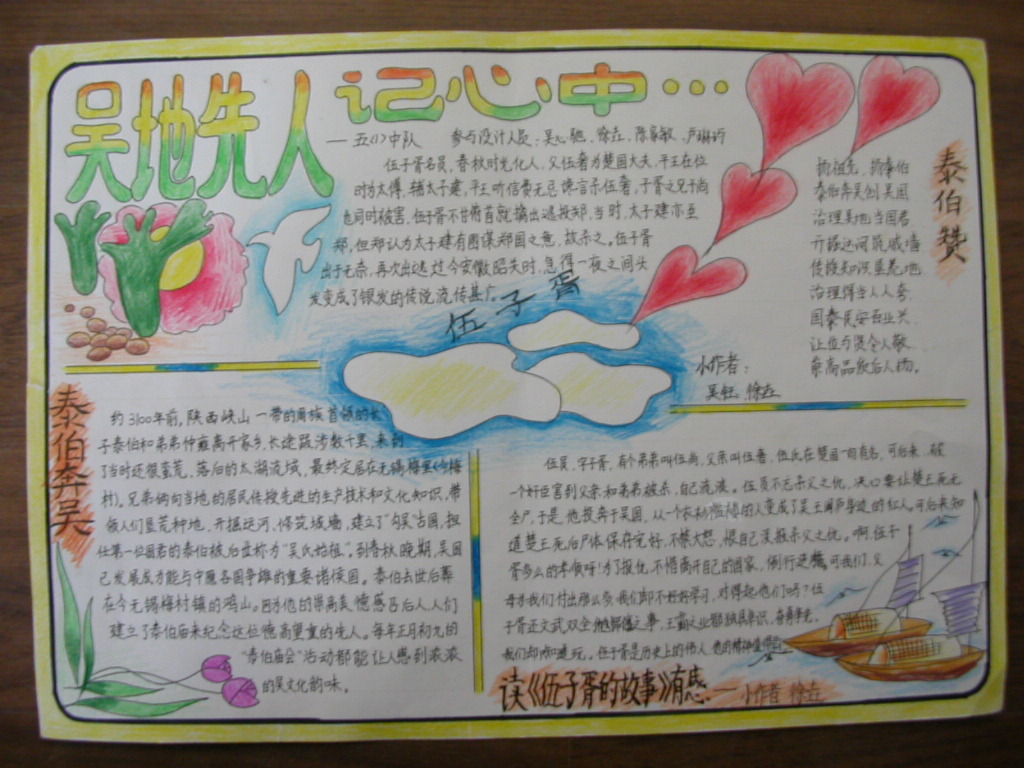 吴地先人记心中…
—五(1)中队 参与设计人员:吴心驰、徐垚、陈家敏、卢琳巧
伍子胥名员,春秋时光化人,父伍奢为楚国大夫,平王在位
时为太傅,辅太子建,平王听信费无忌谗言杀伍奢,子胥之兄子尚
也同时被害,伍子胥不甘俯首就擒出逃投郑,当时,太子建亦至
郑,但郑认为太子建有图谋郑国之意,故杀之。伍子胥
出于无奈,再次出逃,过今安徽昭关时,急得一夜之间头
发变成了银发的传说流传甚广。
伍子胥
泰伯赞
扬祖先,扬泰伯
泰伯奔吴创吴国
治理吴地当国君
开掘运河筑城墙
传授知识垦荒地
治理得当人人夸
国泰民安百业兴
让位与贤令人敬
崇高品质后人扬。
小作者:
吴钰 徐垚
泰伯奔吴
约3100年前,陕西岐山一带的周族首领的长
子泰伯和弟弟仲雍离开家乡,长途跋涉数千里,来到
了当时还很蛮荒、落后的太湖流域,最终定居在无锡梅里(今梅
村)。兄弟俩向当地的居民传授先进的生产技术和文化知识,带
领人们垦荒种地,开掘运河,修筑城墙,建立了“句吴”古国,担
任第一位国君的泰伯被后世称为“吴氏始祖”。到春秋晚期,吴国
已发展成为能与中原各国争雄的重要诸侯国。泰伯去世后葬
在今无锡梅村镇的鸿山。因为他的崇高美德感召后人,人们
建立了泰伯庙来纪念这位德高望重的先人。每年正月初九的
“泰伯庙会”活动都能让人感到浓浓
的吴文化韵味。
伍员,字子胥,有个弟弟叫伍尚,父亲叫伍奢,伍氏在楚国一向有名,可后来,被
一个奸臣害到父亲和弟弟被杀,自己流浪。伍员不忘杀父之仇,决心要让楚王死无
全尸,于是,他投奔于吴国,从一个的人变成了吴王阖庐身边的红人,可后来知
道楚王死后尸体保存完好,不禁大怒,恨自己没报杀父之仇。啊,伍子
胥多么的孝顺呀!为了报仇,不惜离开自己的国家,倒行逆施,可我们,父
母为我们付出那么多,我们却不好好学习,对得起他们吗?伍
子胥正文武双全,之事,王霸之业都独具卓识,
我们却只知道玩。伍子胥是历史上的伟人,他的精神值得
读《伍子胥的故事》有感 —小作者 徐垚